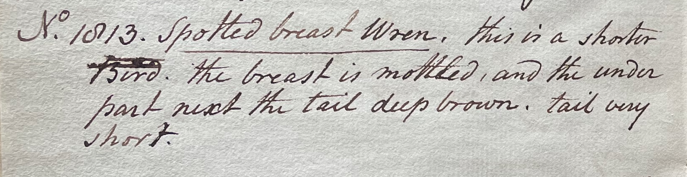 No. 1813. Spotted breast Wren. this is a shorter
Bird. the breast is mottled, and the under
part next the tail deep brown. tail very
short.